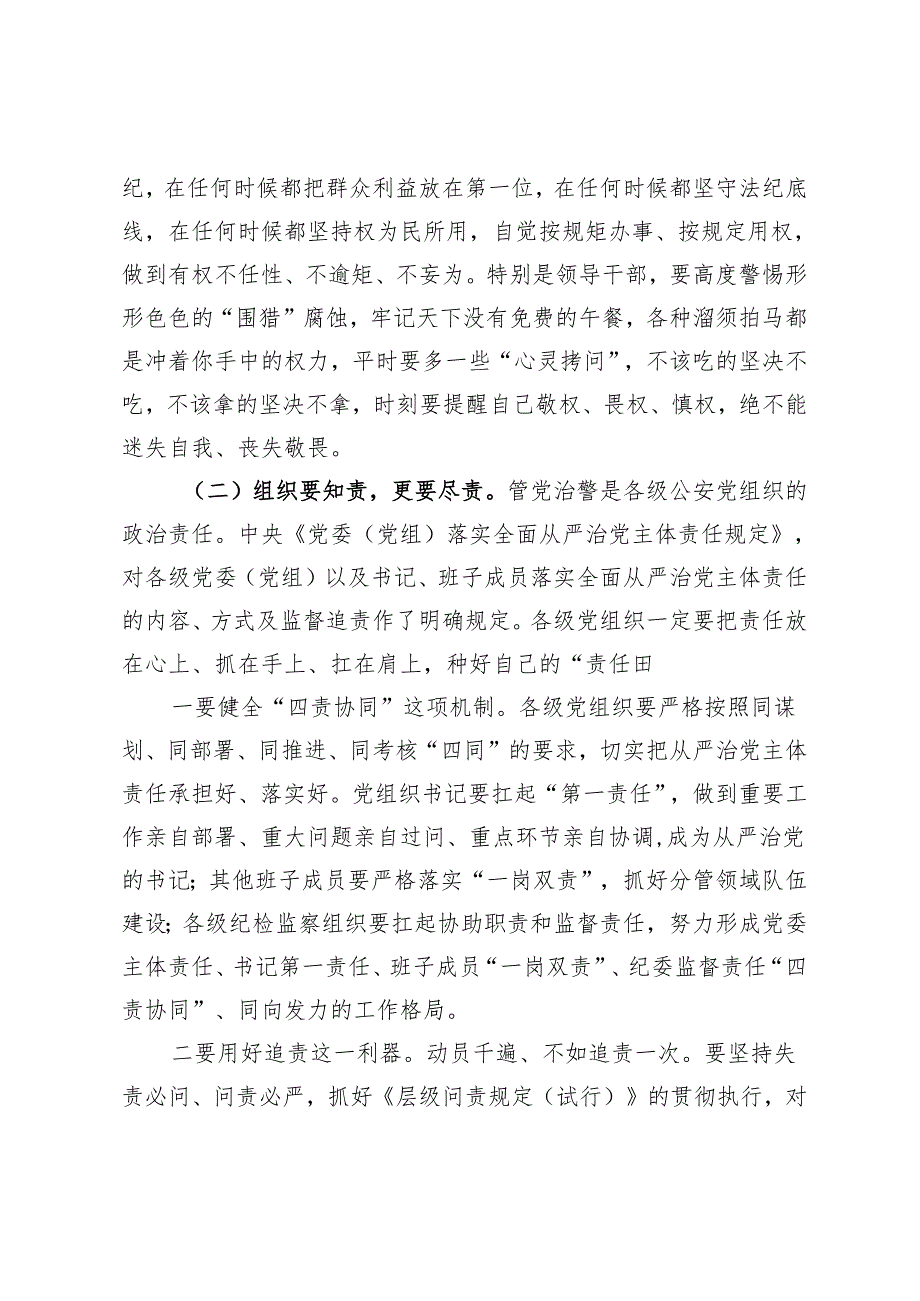 纪，在任何时候都把群众利益放在第一位，在任何时候都坚守法纪底
线，在任何时候都坚持权为民所用，自觉按规矩办事、按规定用权，
做到有权不任性、不逾矩、不妄为。特别是领导干部，要高度警惕形
形色色的“围猎”腐蚀，牢记天下没有免费的午餐，各种溜须拍马都
是冲着你手中的权力，平时要多一些“心灵拷问”，不该吃的坚决不
吃，不该拿的坚决不拿，时刻要提醒自己敬权、畏权、慎权，绝不能
迷失自我、丧失敬畏。
（二）组织要知责，更要尽责。管党治警是各级公安党组织的
政治责任。中央《党委（党组）落实全面从严治党主体责任规定》，
对各级党委（党组）以及书记、班子成员落实全面从严治党主体责任
的内容、方式及监督追责作了明确规定。各级党组织一定要把责任放
在心上、抓在手上、扛在肩上，种好自己的“责任田
一要健全“四责协同”这项机制。各级党组织要严格按照同谋
划、同部署、同推进、同考核“四同”的要求，切实把从严治党主体
责任承担好、落实好。党组织书记要扛起“第一责任”，做到重要工
作亲自部署、重大问题亲自过问、重点环节亲自协调,成为从严治党
的书记；其他班子成员要严格落实“一岗双责”，抓好分管领域队伍
建设；各级纪检监察组织要扛起协助职责和监督责任，努力形成党委
主体责任、书记第一责任、班子成员“一岗双责”、纪委监督责任“四
责协同”、同向发力的工作格局。
二要用好追责这一利器。动员千遍、不如追责一次。要坚持失
责必问、问责必严，抓好《层级问责规定（试行）》的贯彻执行，对